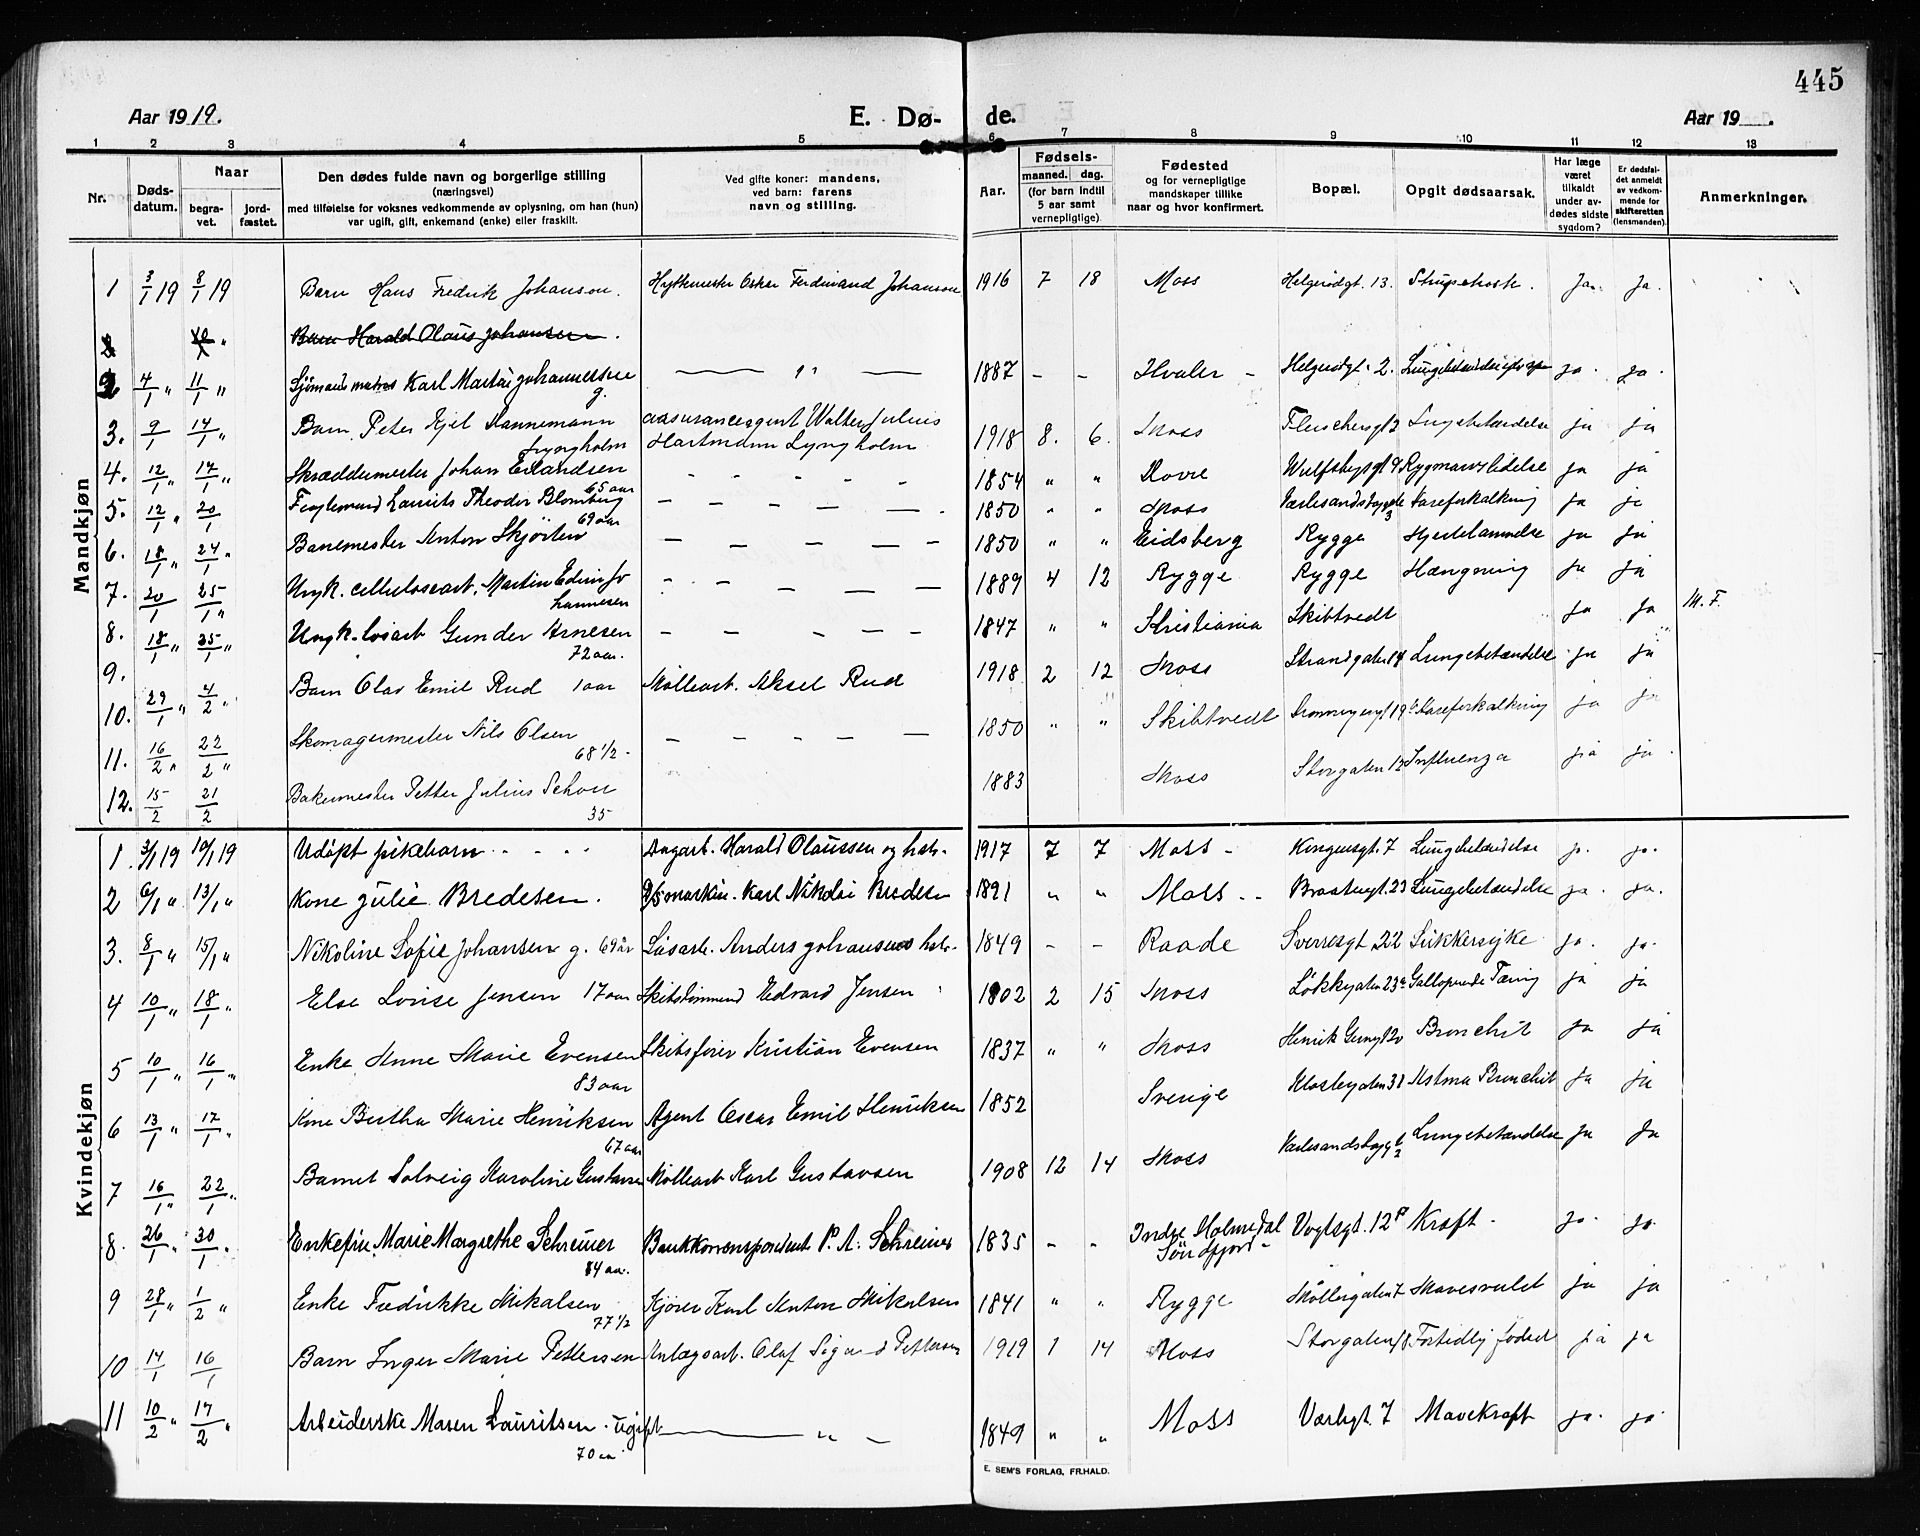 445
Aar 1919.
E. Dø-
de.
Aar 19 .
1 2 3 4 5 6 7 8 9 10 11 12 13
Nr.
Døds-
datum.
Naar
begra-
vet.
jord-
fæstet.
Den dødes fulde navn og borgerlige stilling
(næringsvei)
med tilføielse for voksnes vedkommende av oplysning, om han (hun)
var ugift, gift, enkemand (enke) eller fraskilt.
Ved gifte koner: mandens,
ved barn: farens
navn og stilling.
Aar.
Fødsels-
maaned. dag.
(for barn indtil
5 aar samt
vernepligtige).
Fødested
og for vernepligtige
mandskaper tillike
naar og hvor konfirmert.
Bopæl.
Opgit dødsaarsak.
Har læge
været
tilkaldt
under av-
dødes sidste
sygdom?
Er dødsfal-
det anmeldt
av vedkom-
mende for
skifteretten
(lensmanden).
Anmerkninger.
Mandkjøn
1 3/1 19 8/1 19 Barn Hans Fredrik Johansen. Hyttemester Oskar Ferdinand Johansen 1916 7 18 Moss Helgerødgt. 13. Strupehoste. Ja. Ja.
Barn Harald Olaus Johansen.
2 4/1 " 11/1 " Sjømand Karl Martin Johannessen g. — " — 1887 - - Hvaler - Helgerødgt. 2. ja. ja.
3. 9/1 14/1 " Barn Peter Kjel Hannemann
Lyngholm Assuranceagent Walter Julius
Hartmann Lyngholm 1918 8. 6. Moss Lungebetændelse ja ja
4. 12/1 " 17/1 " Skræddermester Johan Erlandsen
65 aar - - - - 1854 " " Rygmarvslidelse ja ja
5. 12/1 " 20/1 Laurits Theodor Blomberg
69 aar - - - - 1850 " " Moss Aareforkalkning ja ja
6. 18/1 " 24/1 " Banemester Anton Skjørten - - - - 1850 " " Eidsberg Rygge Hjertelammelse ja ja
7. 20/1 25/1 " Ungk. cellulosearb. Martin Edvin Jo
hannesen - - - - 1889 4 12 Rygge Rygge Hængning ja ja
8. 18/1 " 25/1 " Ungk. løsarb Gunder Arnesen
72 aar. - - - - 1847 " " Kristiania Skibtvedt ja ja M. F.
9. 29/1 " 4/2 " Barn Olav Emil Rud 1 aar Møllearb. Aksel Rud 1918 2 12 Moss Strandgaten 14 Lungebetændelse ja ja
10. Skomagermester Nils Olsen
68 1/2 - - - - 1850 " " Skibtvedt Aareforkalkning ja ja
11. 16/2 " 22/2 " Bakermester Petter Julius Schou
35 1883 Moss Storgaten Influenza ja ja
12. 15/2 21/2
Kvindekjøn
1. 3/1 19 10/1 19 Udøpt pikebarn Dagarb. Harald Olaussen og hstr. 1917 7 7 Moss - Kongensgt. 7 Lungebetændelse ja. ja.
2 6/1 " 13/1 " Kone Julie Bredesen. Karl Nikolai Bredesen 1891 " " Moss - - Braatengt. 23 Lungebetændelse ja. ja.
3. 8/1 " 15/1 " Nikoline Sofie Johansen g. 69 år Løsarb. Anders Johansens hstr. 1849 - - Raade Sverresgt 22 Sukkersyke ja. ja.
4 10/1 " 18/1 " Else Lovise Jensen 17 aar Skibstømmermand Edvard Jensen 1902 2 15 Moss Løkkegaten 23a Galloperende Tæring ja ja
5 10/1 " 16/1 " Enke Anne Marie Evensen
83 aar Skibsfører Kristian Evensen 1837 " " Moss Henrik Gernergt 20 Bronchit ja ja
6 13/1 " 17/1 " Kone Bertha Marie Henriksen
67 aar Agent Oscar Emil Henriksen 1852 Sverige Klostergaten 31 Astma Bronchit ja ja
7 16/1 " 22/1 " Barnet Solveig Karoline Gustavsen Møllearb Karl Gustavsen 1908 12 14 Moss Lungebetændelse ja ja
8. 26/1 " 30/1 Enkefru Marie Margrethe Schreiner
84 aar. Bankkorrespondent P. A. Schreiner 1835 - - Indre Holmedal
Söndfjord - Vogtsgt. 12 Kræft - ja. ja.
9 28/1 " 1/2 " Enke Fredrikke Mikalsen
77 1/2 Kjører Karl Anton Mikalsen 1841 " " Rygge Møllergaten 7 Mavesvulst ja ja
10 14/1 16/1 Barn Inger Marie Pettersen Anlægsarb. Olaf Sigurd Pettersen 1919 1 14 Moss Storgaten Fortidlig fødsel ja ja
11 10/2 " 17/2 " Arbeiderske Maren Lauritsen. ugift
70 aar — " - 1849 " " Moss Værlegt. 7 Mavekræft ja. ja.
E. SEM'S FORLAG, FR.HALD.